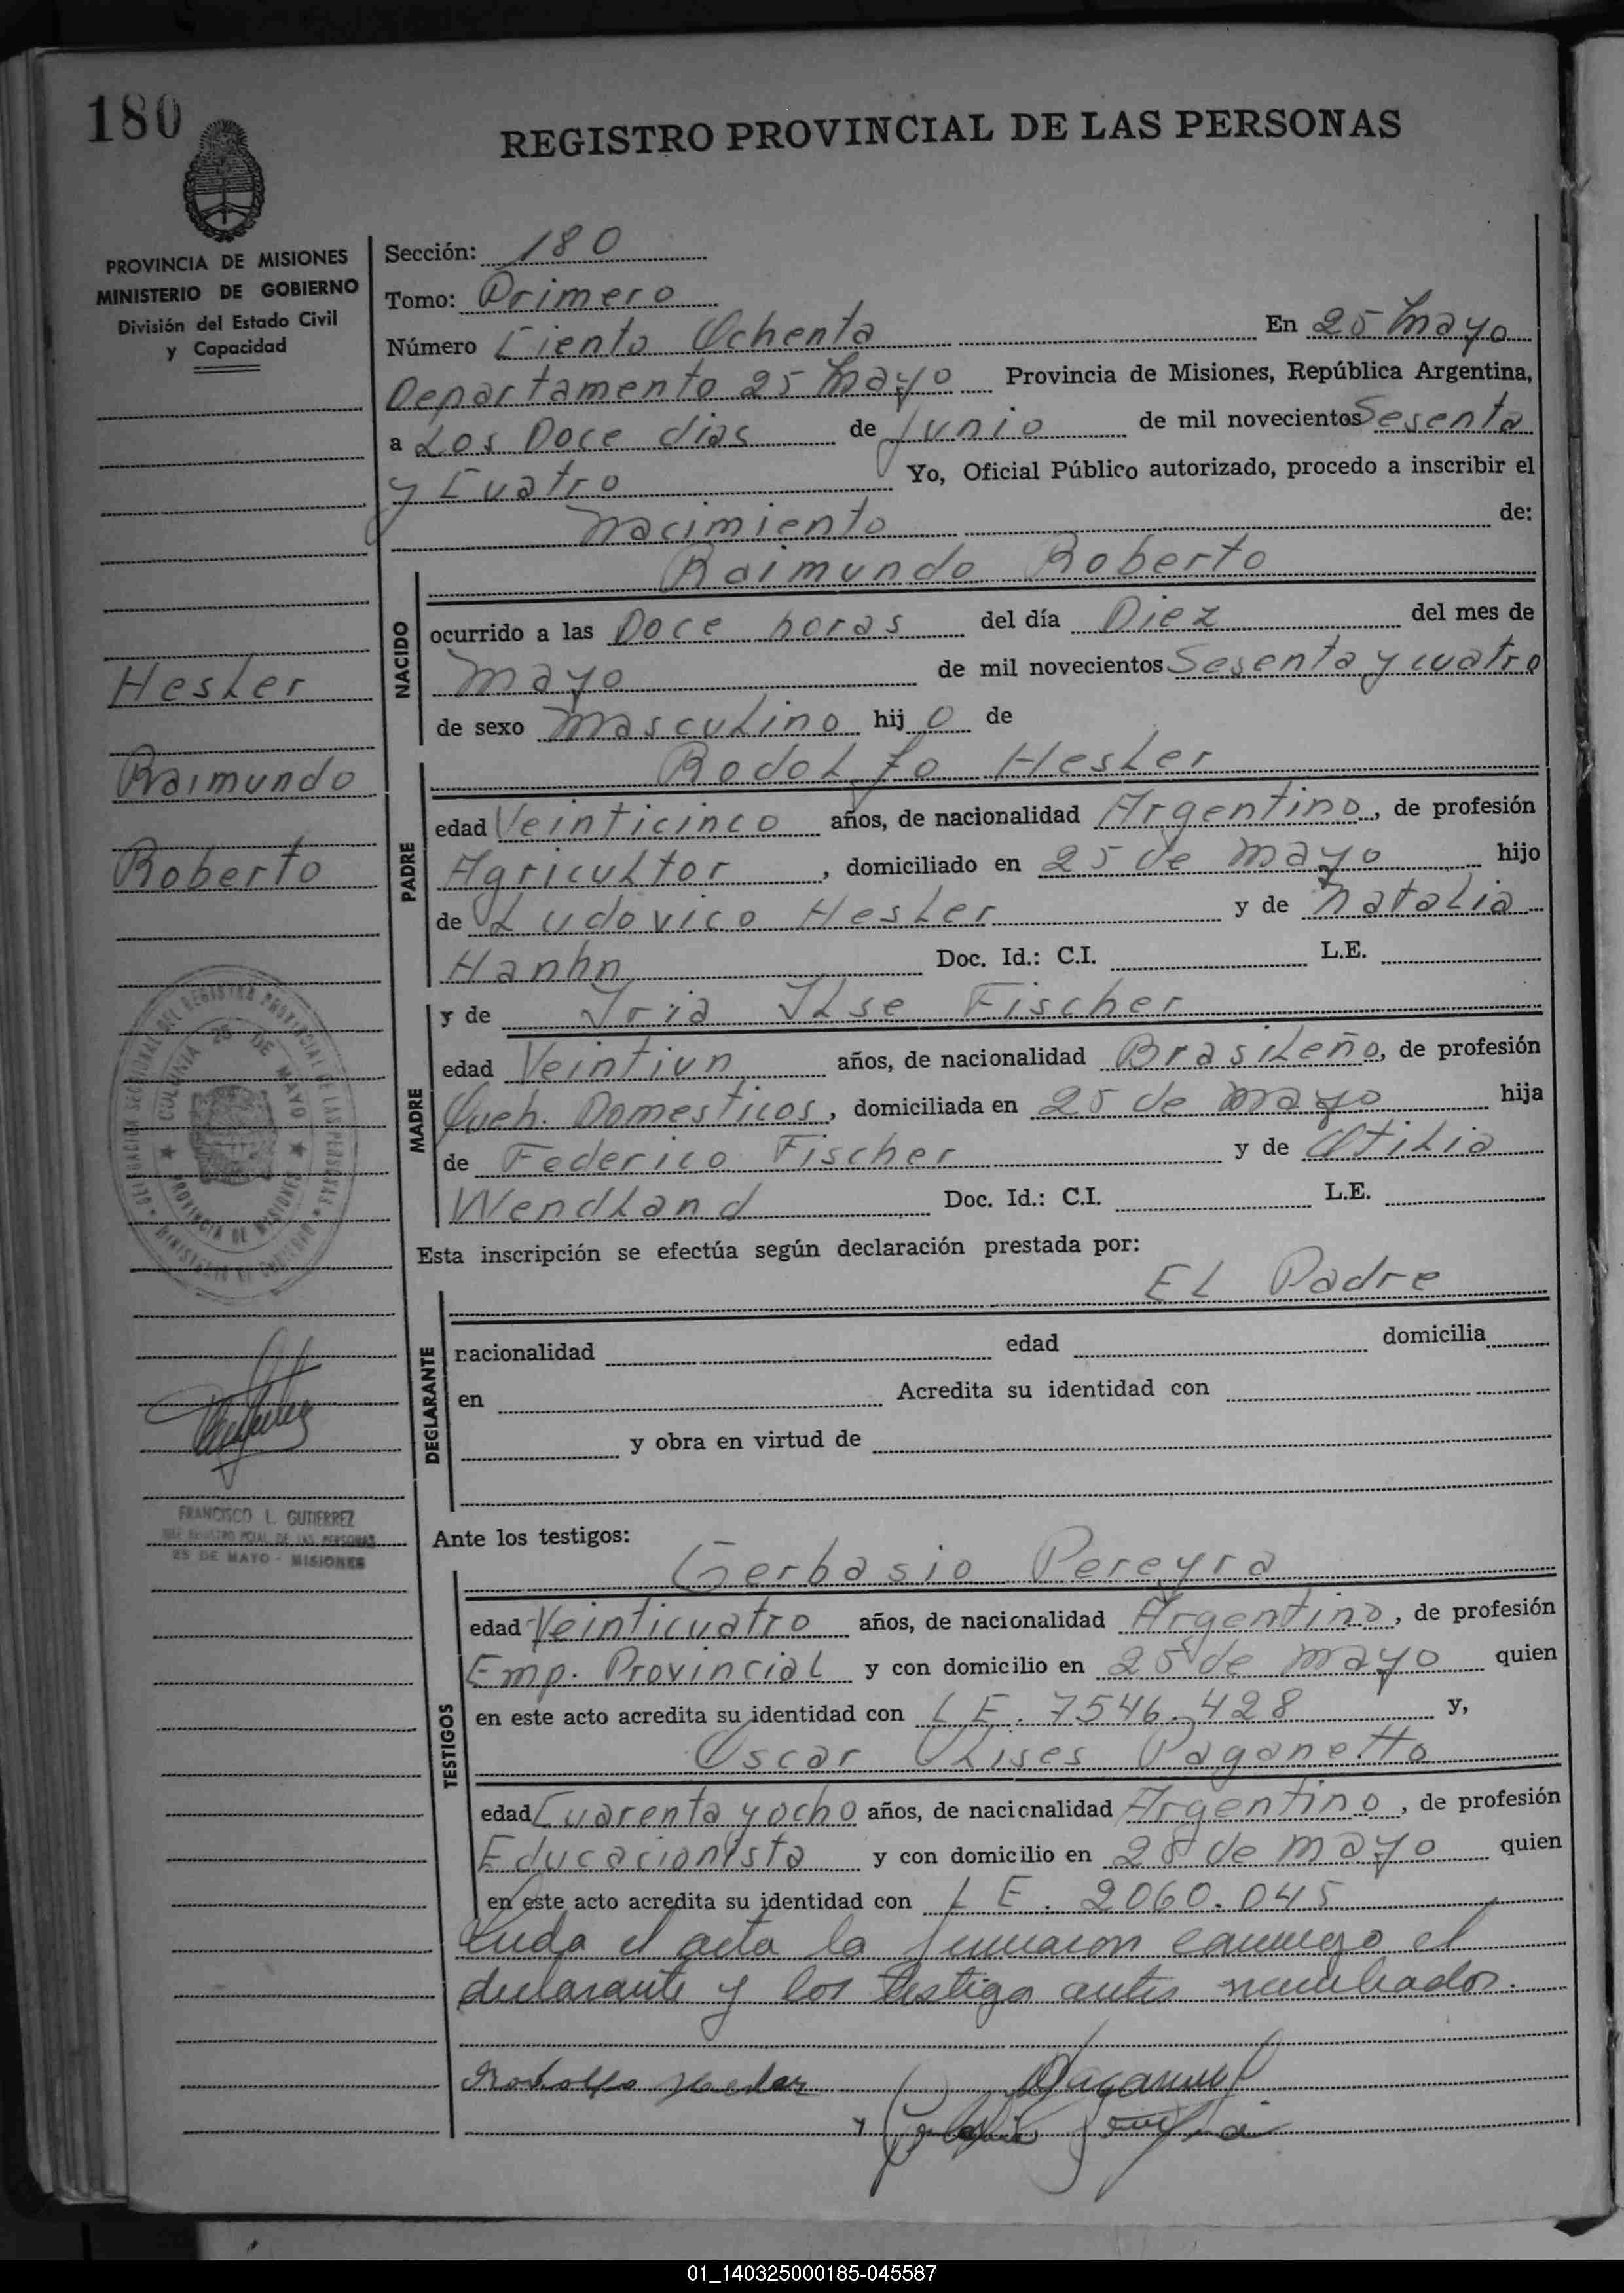 180
REGISTRO PROVINCIAL DE LAS PERSONAS
PROVINCIA DE MISIONES
MINISTERIO DE GOBIERNO
División del Estado Civil
y Capacidad
Sección: 180
Tomo: Primero
Número Ciento Ochenta En 25 Mayo
Departamento 25 Mayo Provincia de Misiones, República Argentina,
a Los Doce dias de Junio de mil novecientos Sesenta
y Cuatro Yo, Oficial Público autorizado, procedo a inscribir el
Nacimiento de:
Raimundo Roberto
NACIDO
ocurrido a las Doce horas del día Diez del mes de
Mayo de mil novecientos Sesenta y cuatro
de sexo Masculino hijo de
Hesler
Raimundo
Roberto
Rodolfo Hesler
PADRE
edad Veinticinco años, de nacionalidad Argentino, de profesión
Agricultor, domiciliado en 25 de Mayo hijo
de Ludovico Hesler y de Natalia
Hanhn Doc. Id.: C.I. L.E.
y de Iria Ilse Fischer
MADRE
edad Veintiun años, de nacionalidad Brasileño, de profesión
Queh. Domesticos, domiciliada en 25 de Mayo hija
de Federico Fischer y de Otilia
Wendland Doc. Id.: C.I. L.E.
COLONIA 25 DE MAYO
PROVINCIA DE MISIONES
Esta inscripción se efectúa según declaración prestada por:
El Padre
DECLARANTE
nacionalidad edad domicilia
en Acredita su identidad con
y obra en virtud de
FRANCISCO L. GUTIERREZ
JEFE REGISTRO PCIAL. DE LAS PERSONAS
25 DE MAYO - MISIONES
Ante los testigos:
Gerbasio Pereyra
TESTIGOS
edad Veinticuatro años, de nacionalidad Argentino, de profesión
Emp. Provincial y con domicilio en 25 de Mayo quien
en este acto acredita su identidad con L E. 7546.428 y,
Oscar Ulises Paganetto
edad Cuarenta y ocho años, de nacionalidad Argentino, de profesión
Educacionista y con domicilio en 25 de Mayo quien
en este acto acredita su identidad con L E. 2060.045
el acta la conmigo el
declarante y los testigo antes nombrados.
Rodolfo Hesler
01_140325000185-045587